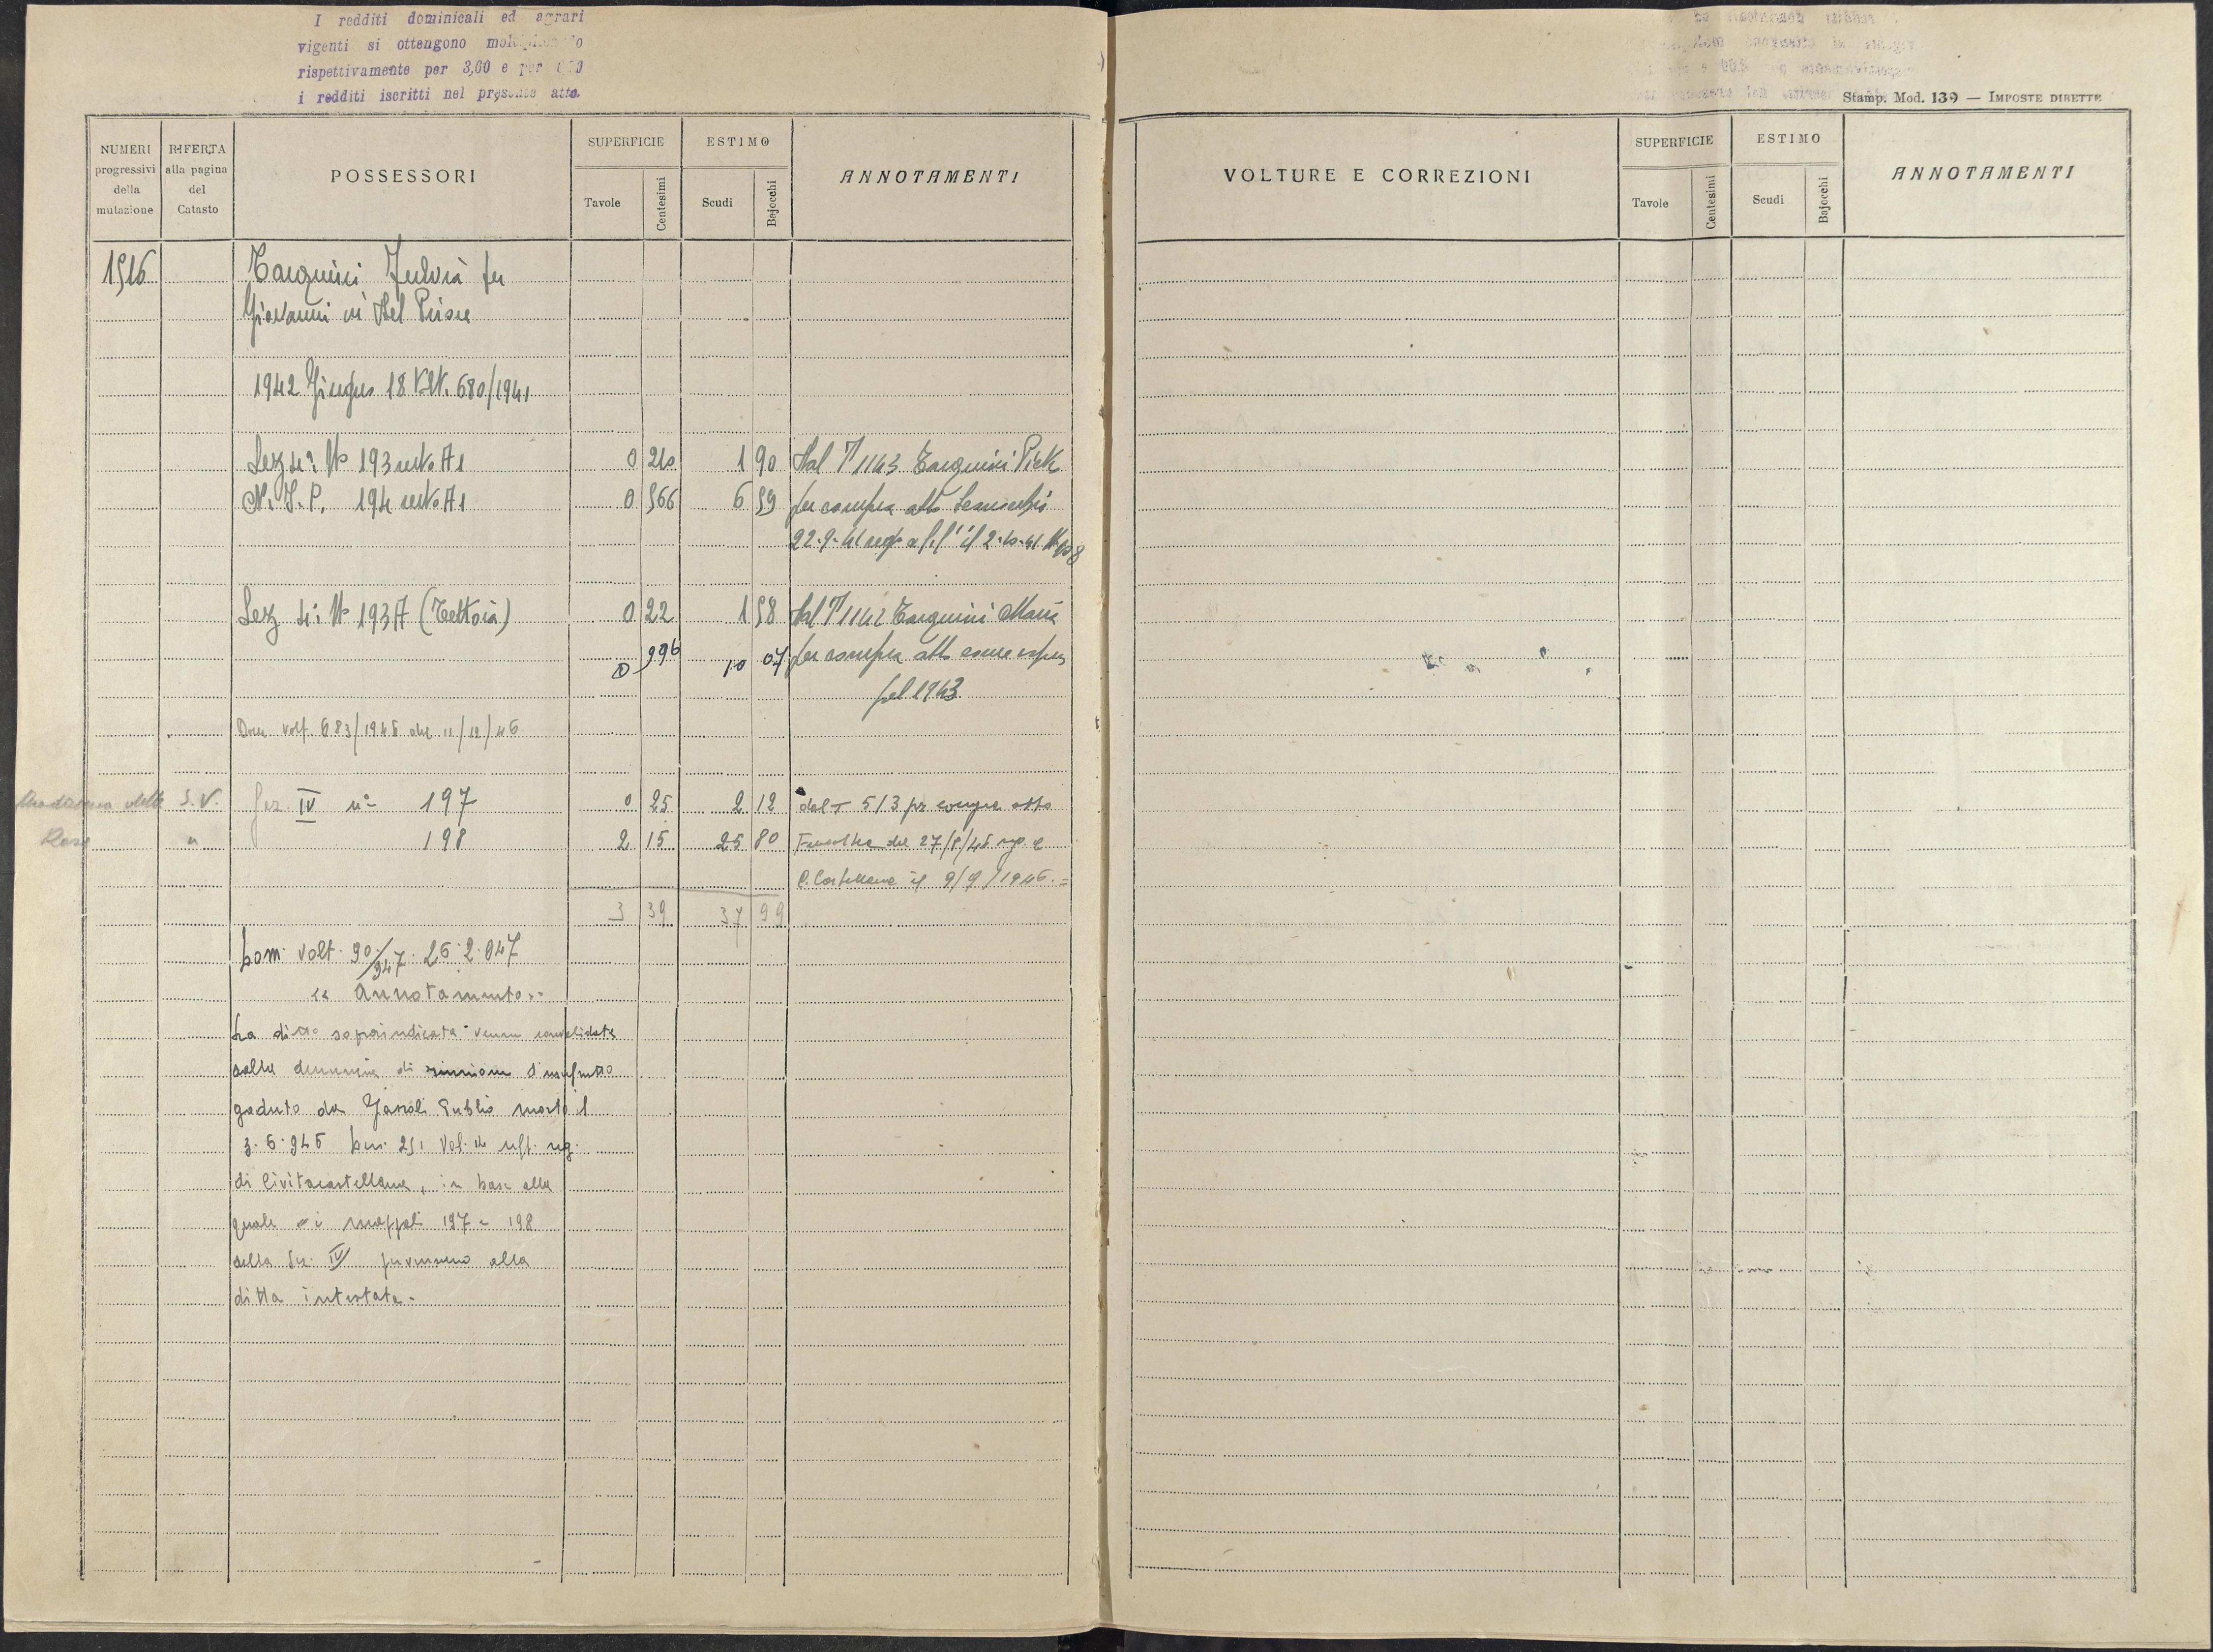 I redditi dominicali ed agrari
vigenti si ottengono
rispettivamente per 3,00 e per
i redditi iscritti nel presente atto.
Stamp. Mod. 139 — IMPOSTE DIRETTE
NUMERI progressivi della mutazione
RIFERTA alla pagina del Catasto
POSSESSORI
SUPERFICIE
Tavole
Centesimi
ESTIMO
Scudi
Bajocchi
ANNOTAMENTI
VOLTURE E CORREZIONI
SUPERFICIE
Tavole
Centesimi
ESTIMO
Scudi
Bajocchi
ANNOTAMENTI
1516 Tarquini Fulvia fu
Giovanni in Del Priore
1942 Giugno 18 680/1941
Sez 4ª Nº 193 resto A1 0 210 1 90 Dal 1143 Tarquini
194 resto A1 0 566 6 59 per compra atto
22-9-41 il 2-10-41
Sez 4ª Nº 193 A (Tettoia) 0 22 1 58 Dal 1142 Tarquini Maria
0 996 10 07 per compra atto come
pel 1943
Dom volt. 683/1946 del 11/12/46
S.V. Sez IV nº 197 0 25 2 12 dal T 513 per compra atto
" 198 2 15 25 80 del 27/8/46 reg. a
C. Castellana il 9/9/1946.=
3 39 37 99
Dom. volt. 90/947. 26.2.947
"Annotamento"
La ditta sopraindicata venne consolidata
dalla denunzia di riunione d'usufrutto
goduto da morto il
3.6.946 den. 251 Vol. 14 uff. reg.
di Civitacastellana, in base alla
quale i mappali 197 e 198
della Sez. IV pervennero alla
ditta intestata.